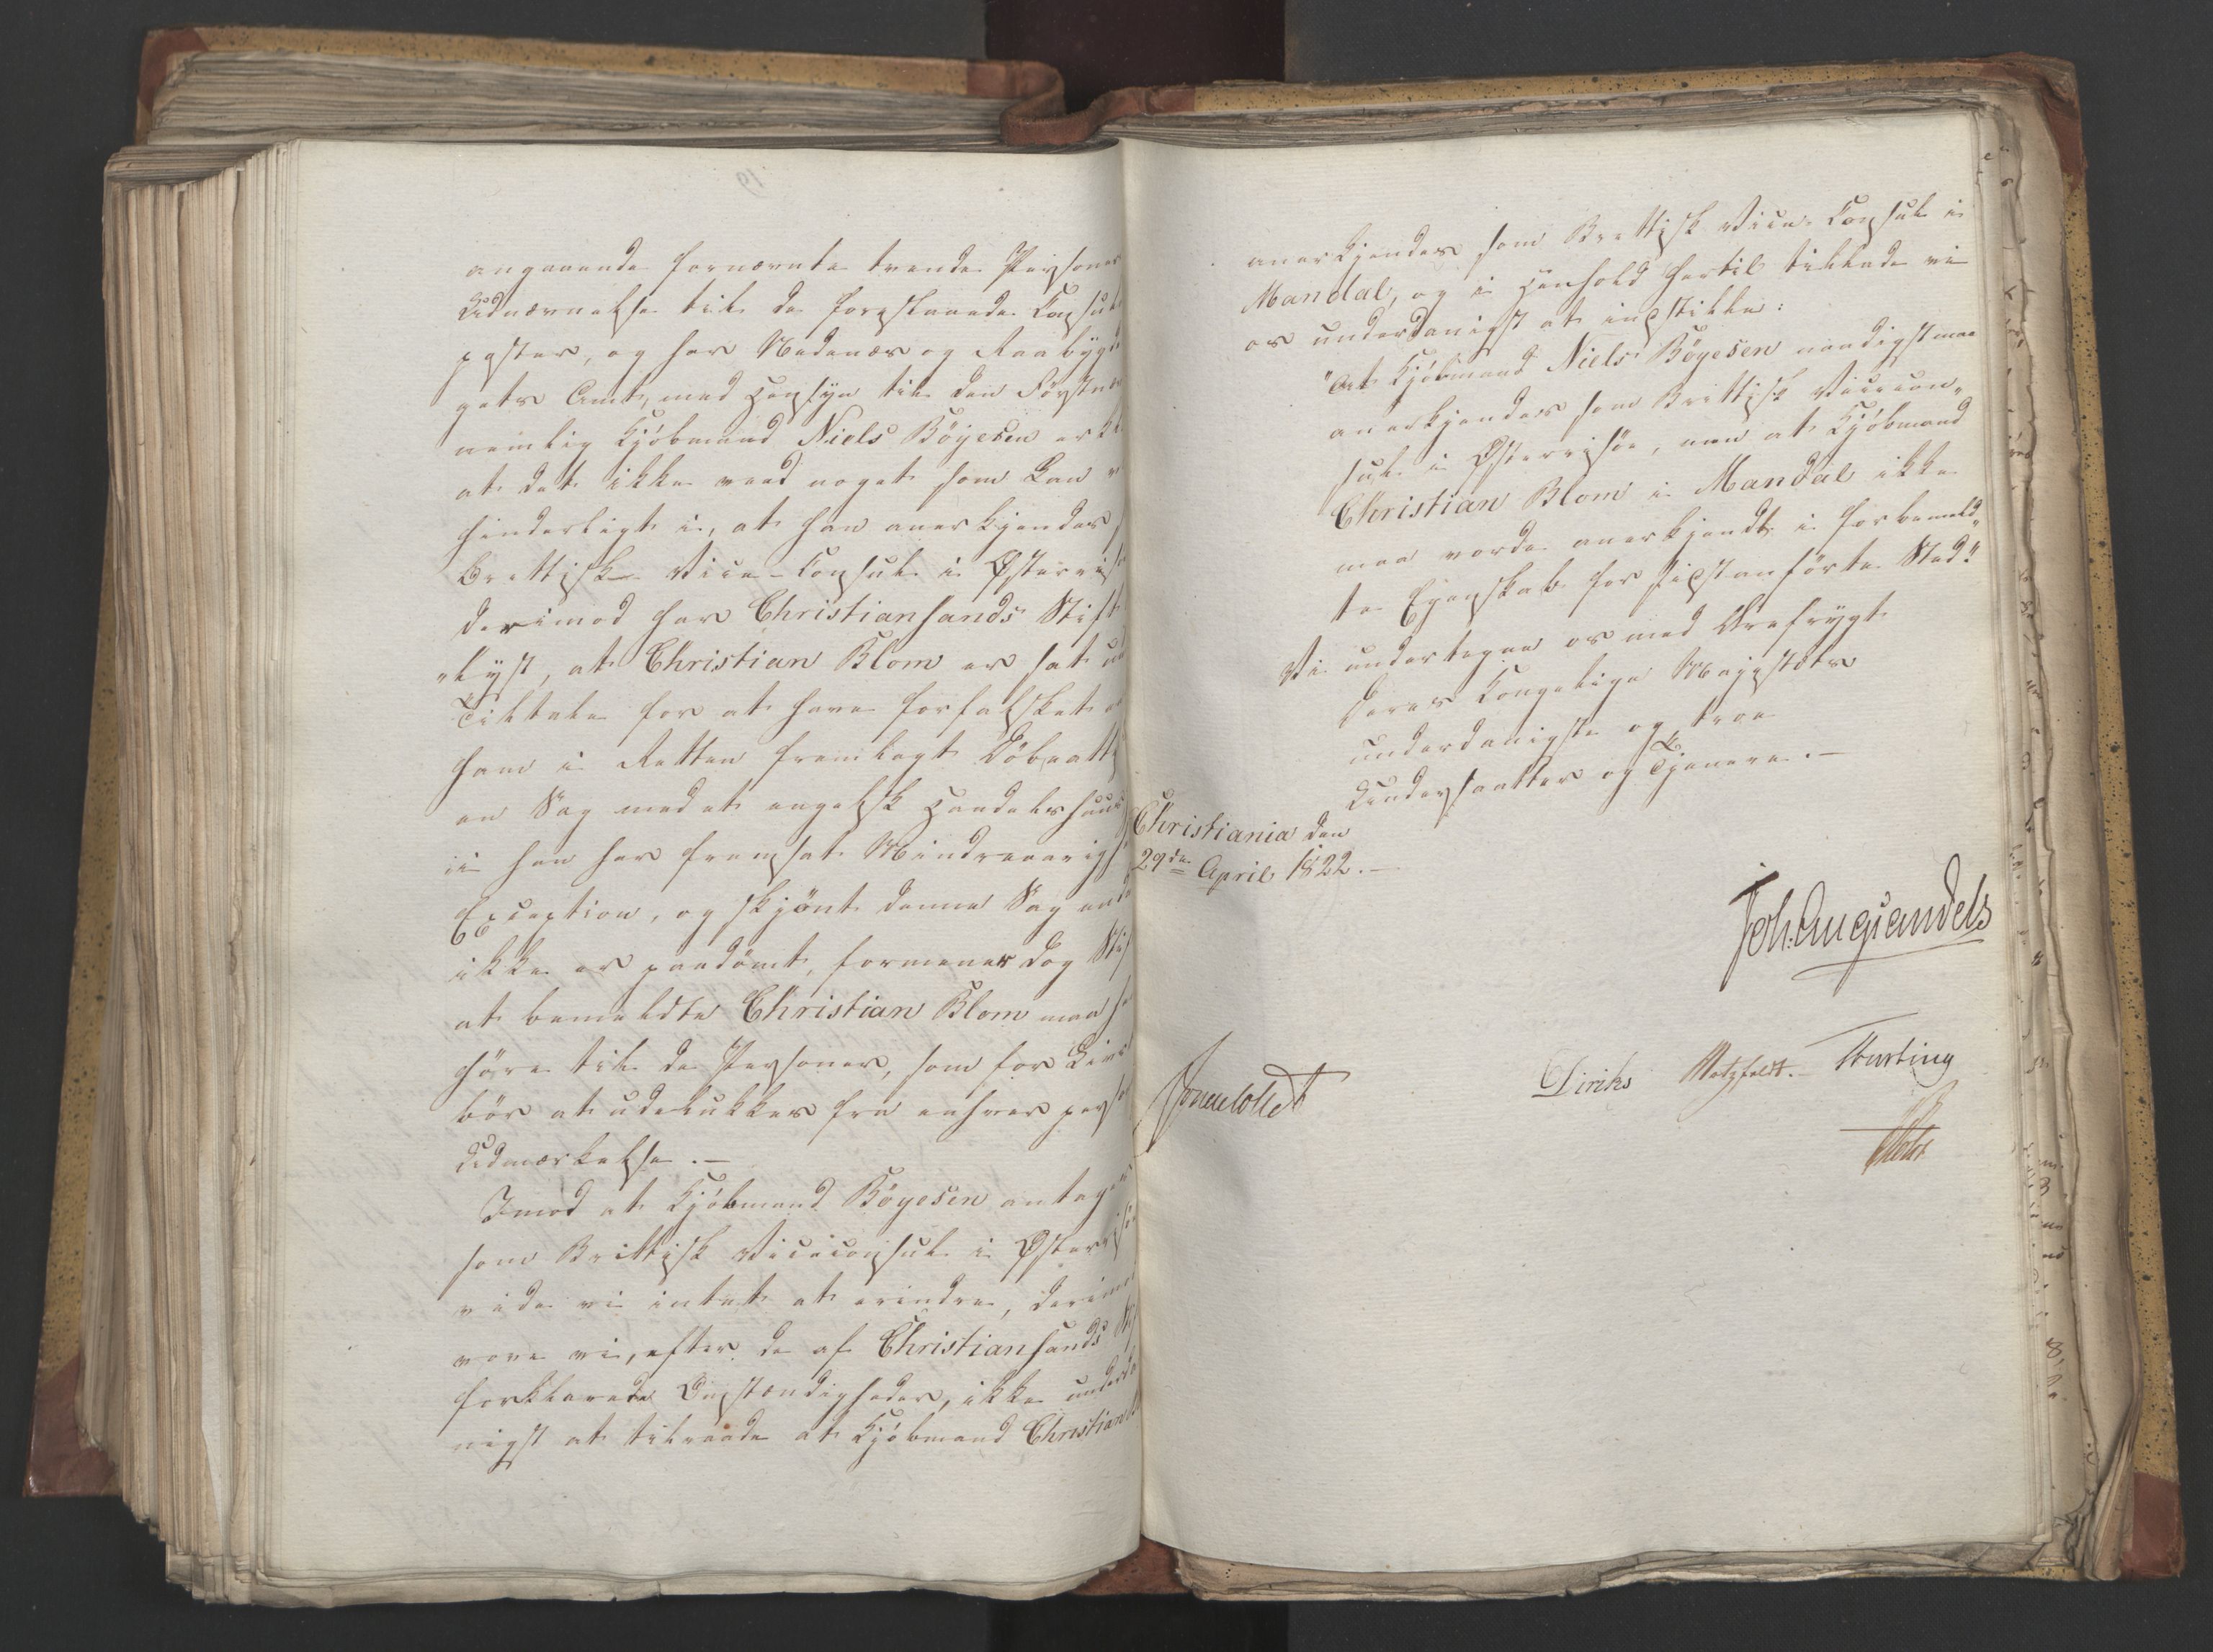 angaaende fornævnte tvende Personer
Udnævnelse til de foreslaaede Consul
poster, og har Nedenæs og Raabygde
gets Amt, med Hensyn til den Første
nemlig Kjöbmand Niels Böyesen erkl
at det ikke veed noget som kan v
hinderligt i, at han anerkjendes
Brittisk Vice-Consul i Østerriisö
derimod har Christiansands Stift
"lyst, at Christian Blom er sat un
Tiltale for at have forfalsket
ham i Retten fremlagt Döbeatt
en Sag med et engelsk Handelshuus
i han har fremsat Mindreaarigh
Exception, og skjönt denne Sag end
ikke er paadömt, formener dog Stif
at bemeldte Christian Blom maa
höre til de Personer, som for Tide
bör at udelukkes fra enhver pers
Udmærkelse.-
Imod at Kjöbmand Böyesen antages
som Brittisk Viceconsul i Østerriisö
vide vi intet at erindre, derimod
vove vi, efter de af Christiansands Sti
forklarede Omstændigheder, ikke underda
nigst at tilraade at Kjöbmand Christian
anerkjendes som Brittisk Vice-Consul i
Mandal, og i Henhold hertil tillade vi
os underdanigst at indstille:
"At Kjöbmand Niels Böyesen naadigst maa
anerkjendes som Brittisk Vicecon"
sul i Østerriisöe, men at Kjöbmand
Christian Blom i Mandal ikke
maa vorde anerkjendt i forbemeld"
te Egenskab for sidstanförte Sted."
Vi undertegne os med Ærefrygt
Deres Kongelige Majestæts
underdanigste og troe
Undersaatter og Tjenere.-
Christiania den
29de April 1822.-
Joh: Aug: Sandels
Jonas Collett
Diriks Motzfeldt. Thurting